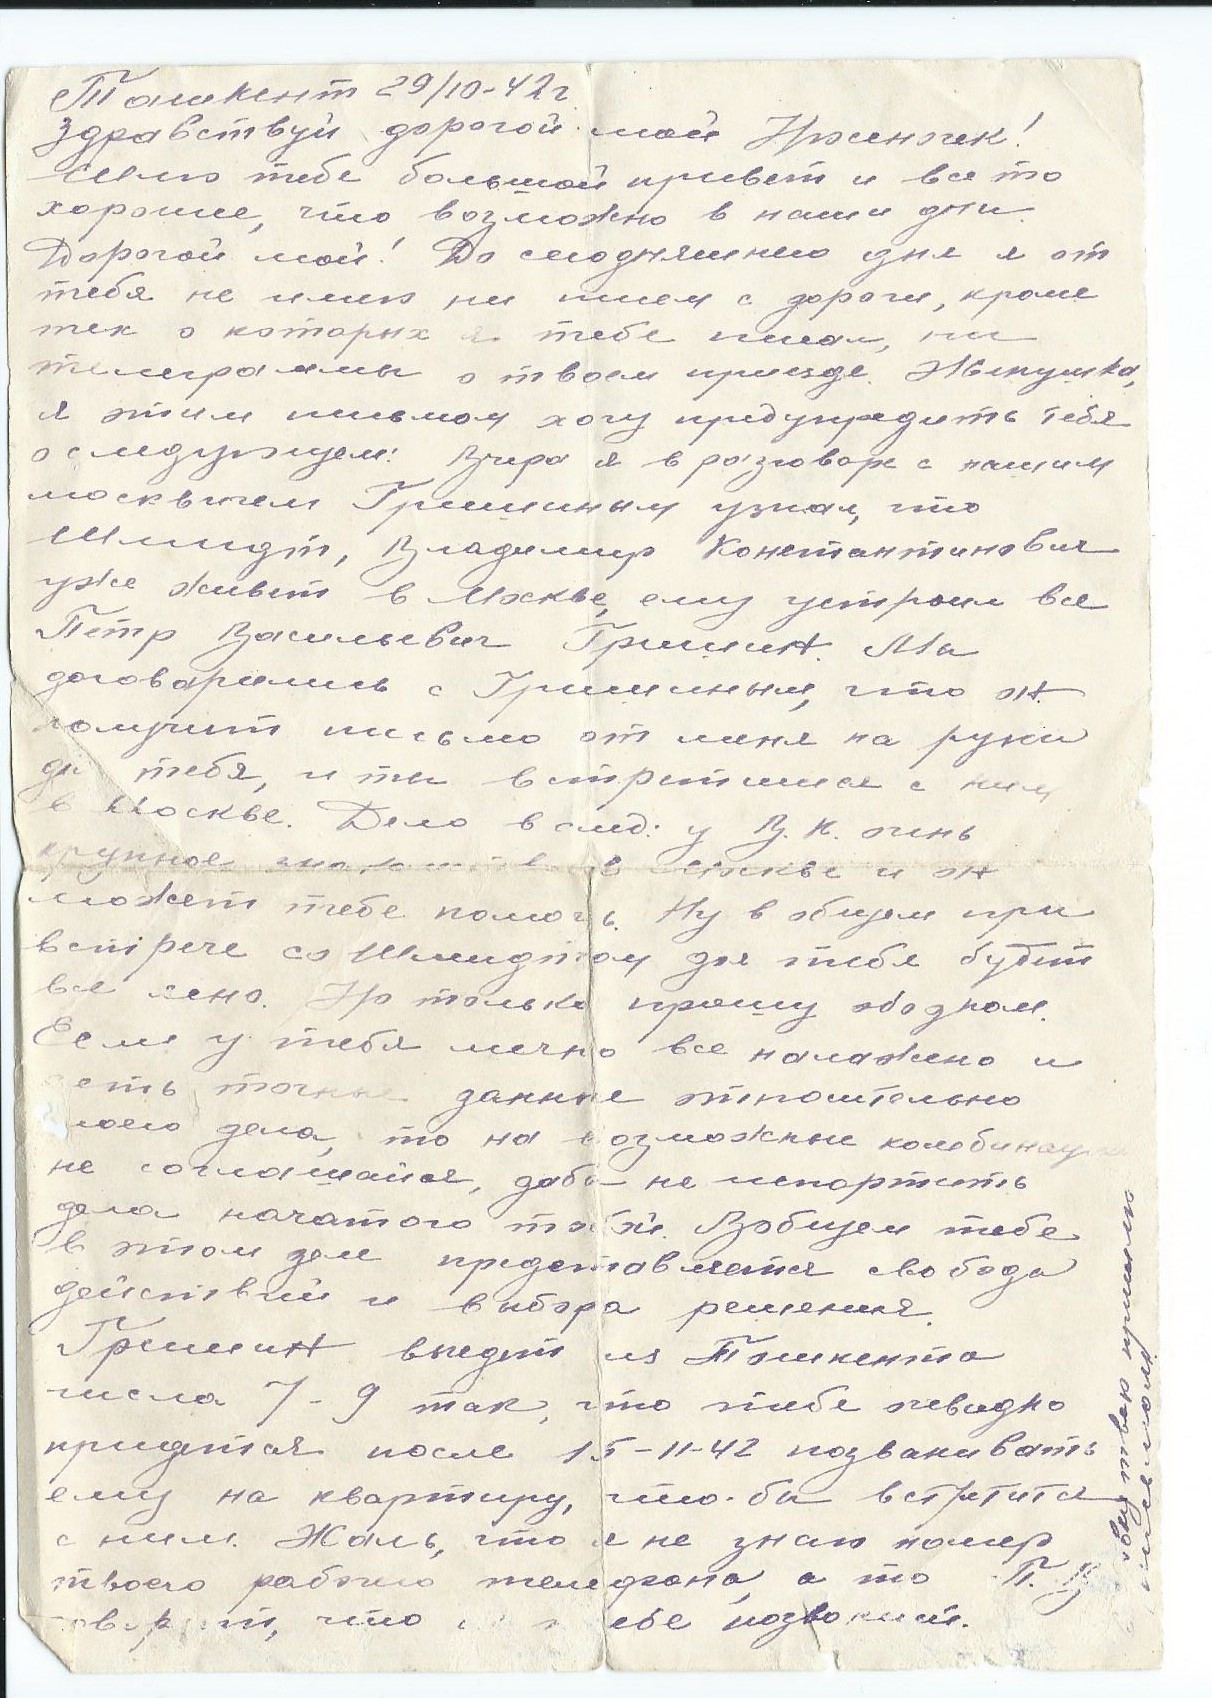 Ташкент 29/10-42 г.
Здравствуй дорогой мой
Шлю тебе большой привет и все то
хорошее, что возможно в наши дни.
Дорогой мой! До сегодняшнего дня я от
тебя не имею ни писем с дороги, кроме
тех о которых я тебе писал, ни
телеграммы о твоем приезде.
я этим письмом хочу предупредить тебя
о следующем: Вчера я в разговоре с нашим
москвичем Гришиным узнал, что
Шмидт, Владимир Константинович
уже живет в Москве, ему устроил все
Петр Васильевич Гришин. Мы
договорились с Гришиным, что он
получит письмо от меня на руки
для тебя, и ты встретишься с ним
в Москве. Дело в след: у В. К. очень
крупное знакомство в Москве и он
может тебе помочь. Ну в общем при
встрече со Шмидтом для тебя будет
все ясно. Но только прошу об одном.
Если у тебя лично все налажено и
есть точные данные относительно
моего дела, то на возможные комбинации
не соглашайся, дабы не испортить
дела начатого тобой. Вобщем тебе
в этом деле предоставляется свобода
действий и выбора решения.
Гришин выедет из Ташкента
числа 7-9 так, что тебе очевидно
придется после 15-11-42 позванивать
ему на квартиру, что-бы встретится
с ним. Жаль, что я не знаю номер
твоего рабочего телефона, а то П. В.
говорит, что он тебе позвонит.
письмом